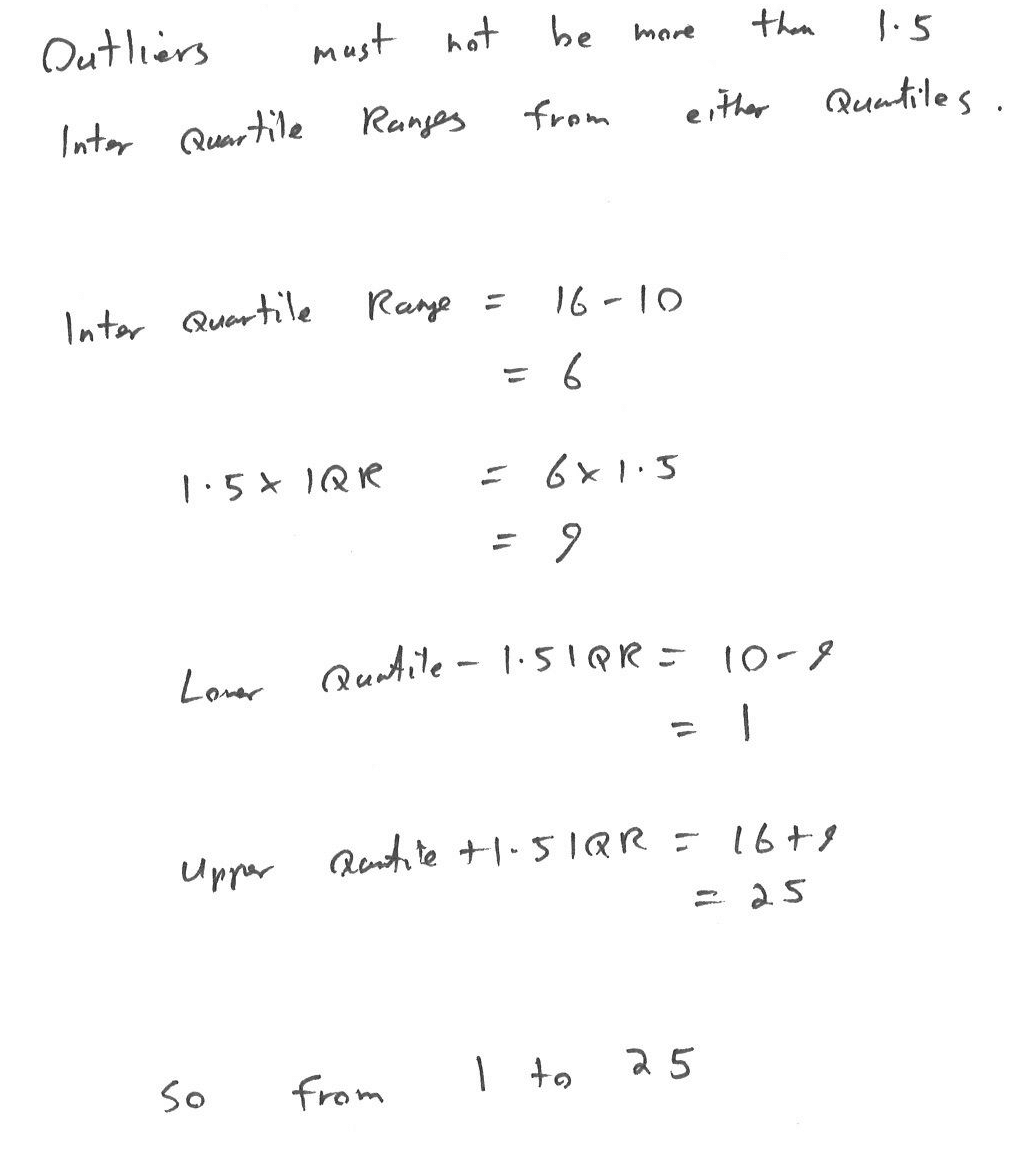 Outliers must not be more than 1.5
Inter Quartile Ranges from either Quantiles.
Inter Quartile Range = 16-10
= 6
1.5 x IQR = 6 x 1.5
= 9
Lower Quantile - 1.5 IQR = 10-9
= 1
Upper Quantile + 1.5 IQR = 16+9
= 25
So from 1 to 25